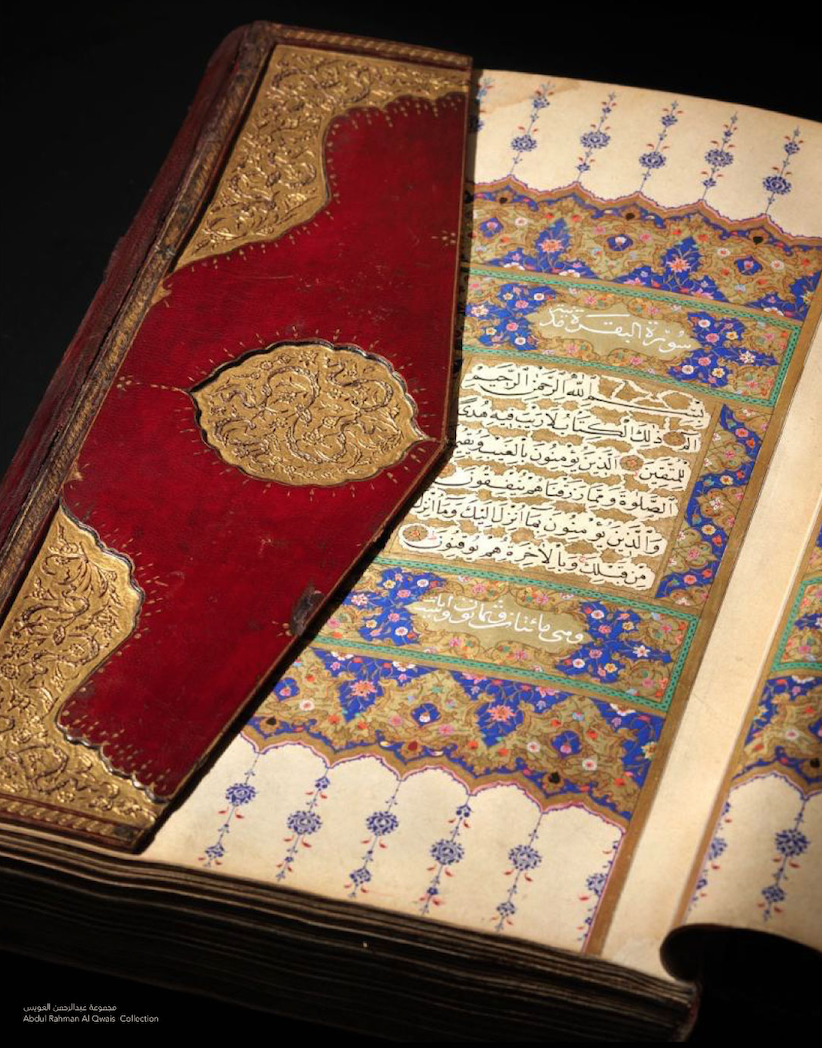 سورة البقرة
بسم الله الرحمن الرحيم
الم ذلك الكتاب لا ريب فيه هدى
للمتقين الذين يؤمنون بالغيب
الصلوة ومما رزقناهم ينفقون
والذين يؤمنون بما انزل اليك وما انزل
من قبلك وبالاخرة هم يوقنون
وهى مائتان وثمانون
مجموعة عبدالرحمن العويس
Abdul Rahman Al Qwais Collection